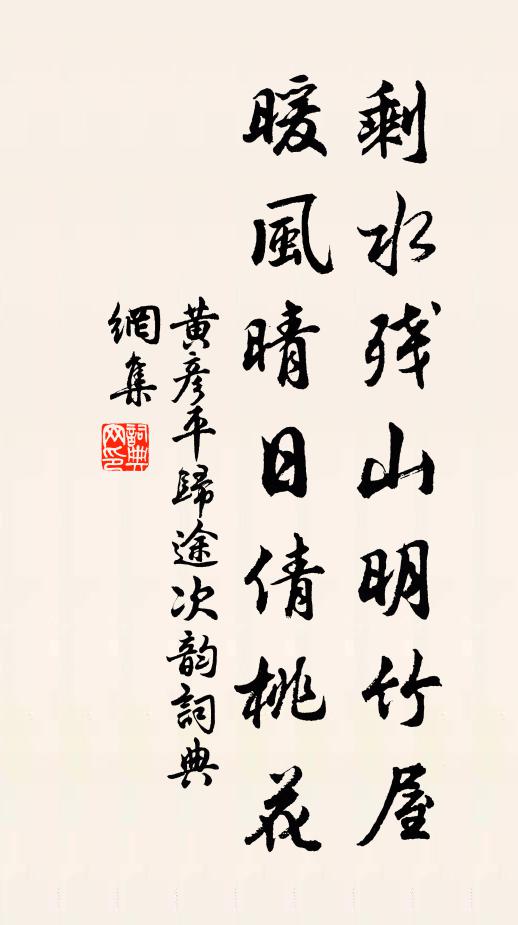 剩水残山明竹屋
暖風晴日倩桃花
黃彦平歸途次韵詞典
網集
詞典网印